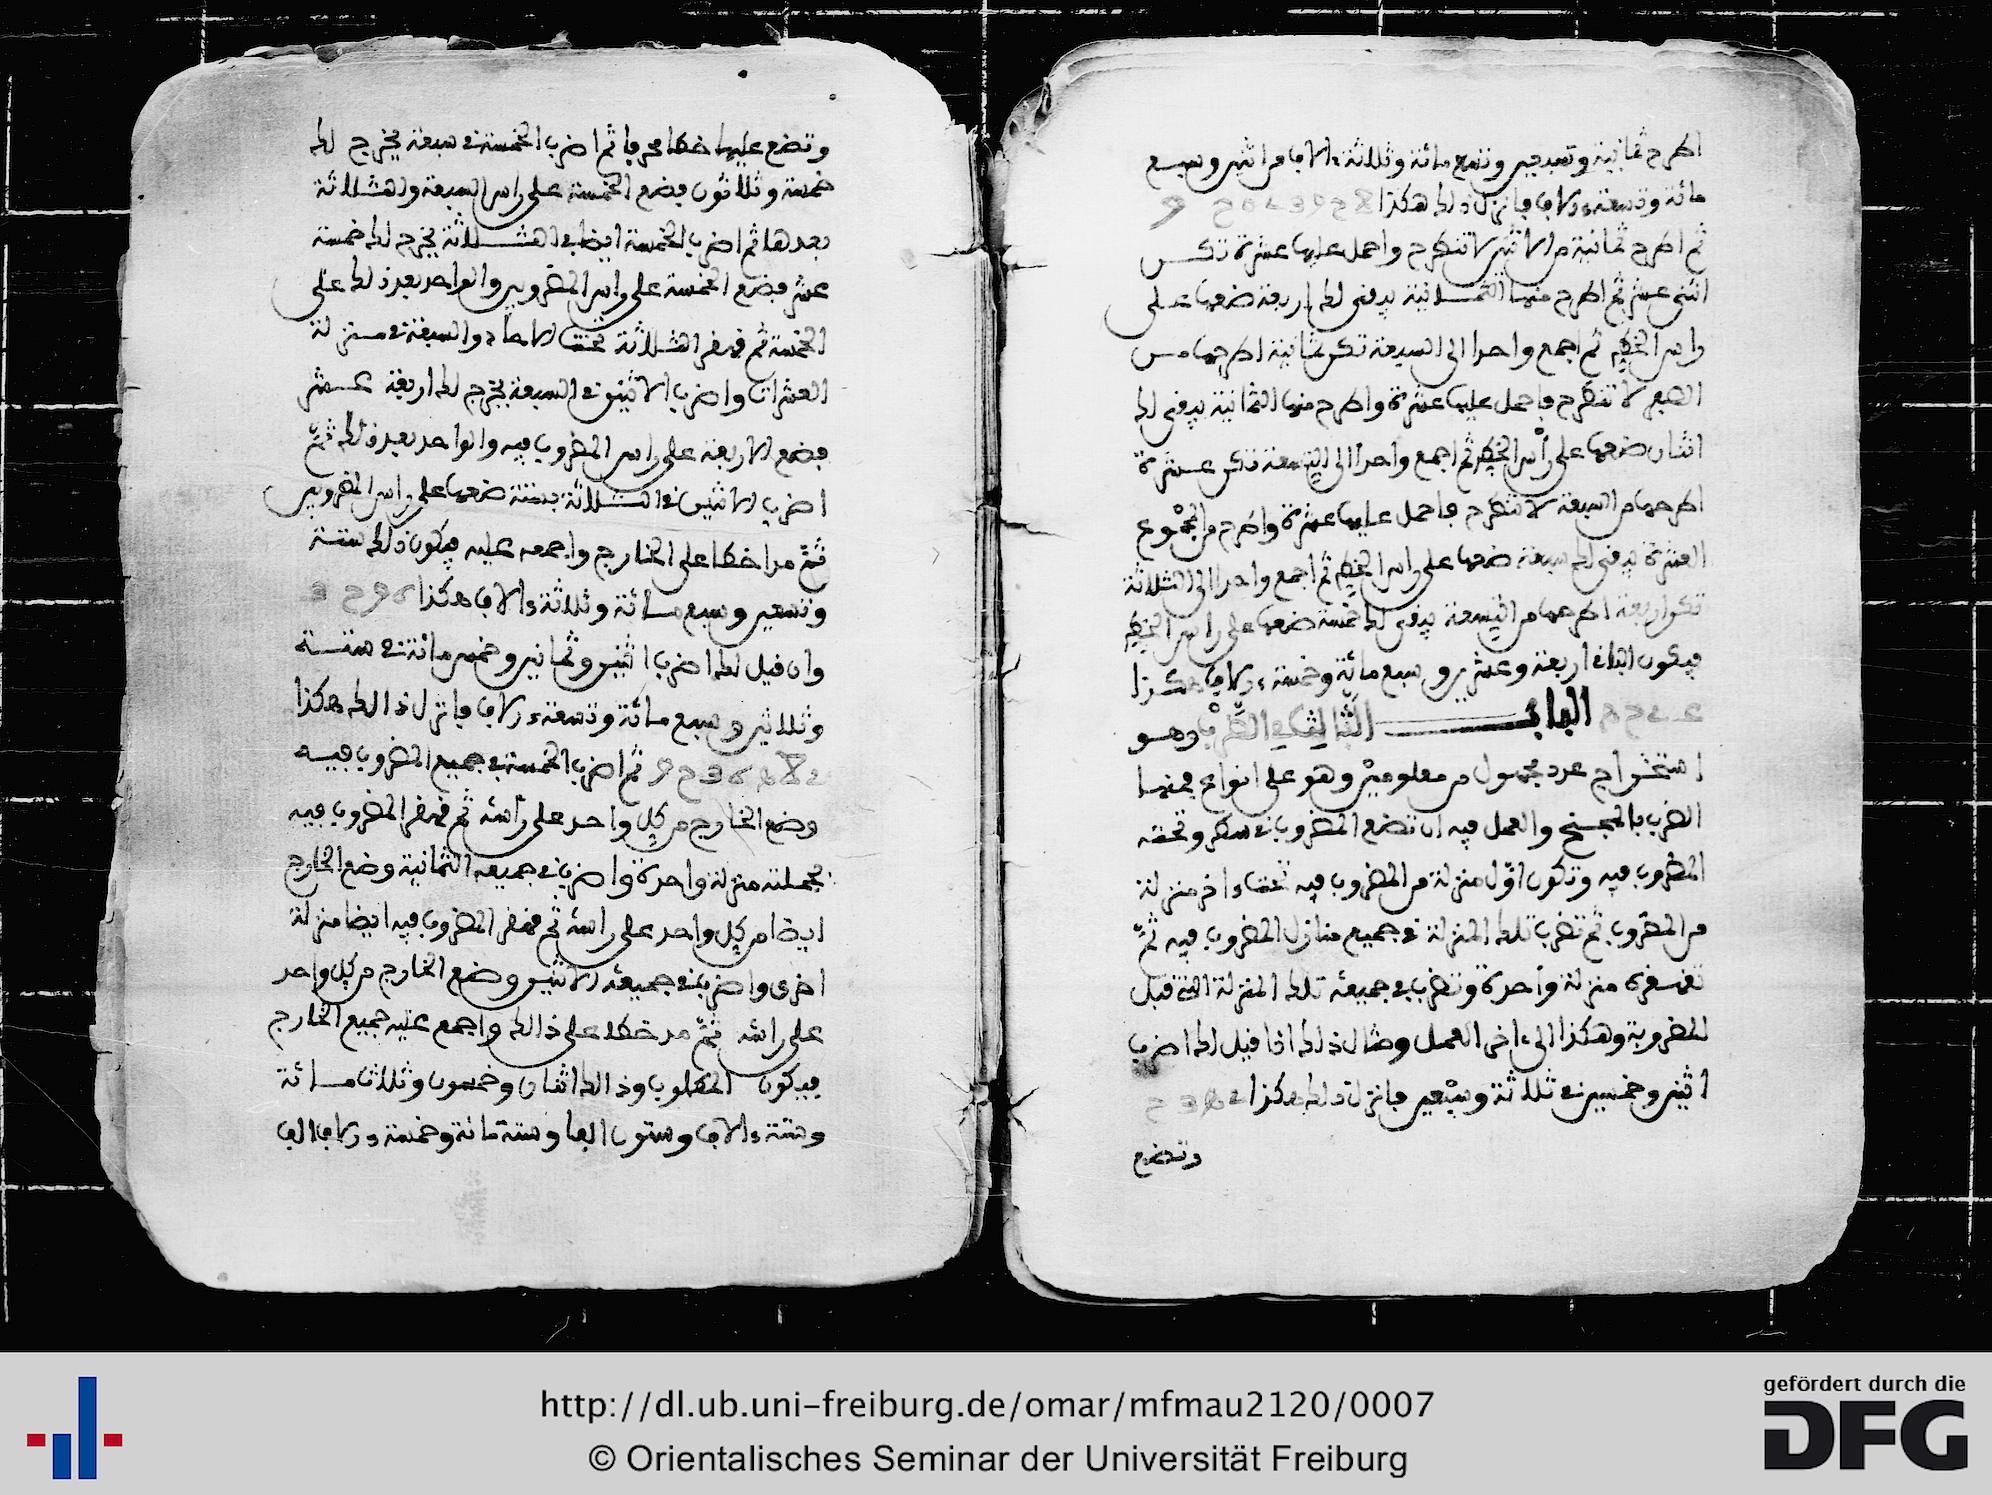 اطرح ثمانية وتسعين وتسع مائة وثلاثة ءالاف من اثنين وسبع
مائة وتسعة ءالاف فانزل ذلك هكذا
ثم اطرح ثمانية من الاثنين لا تنطرح واحمل عليها عشرة تكن
اثنى عشر ثم اطرح منها الثمانية يبقى لك اربعة ضعها على
راس الخط ثم اجمع واحدا الى التسعة تكن عشرة اطرحها من
الصفر لا تنطرح فاحمل عليها عشرة واطرح منها
اثنان ضعها على رأس الخط ثم اجمع واحدا الى التسعة تكن عشرة
اطرحها من السبعة لا تنطرح فاحمل عليها عشرة واطرح من المجموع
العشرة يبقى لك سبعة ضعها على راس الخط ثم اجمع واحدا الى الثلاثة
تكن اربعة اطرحها من التسعة يبقى لك خمسة ضعها على راس الخط
فيكون الباقي اربعة وعشرين وسبع مائة وخمسة ءالاف هكذا
الباب الثالث في الضرب وهو
استخراج عدد مجهول من معلومين وهو على انواع فمنها
الضرب بالمجنح والعمل فيه ان تضع المضروب في سطر وتحته
المضروب فيه وتكون اوّل منزلة من المضروب فيه تحت ءاخر منزلة
من المضروب ثم تضرب تلك المنزلة في جميع منازل المضروب فيه ثمّ
تقهقره منزلة واحدة وتضرب في جميعه تلك المنزلة التي قبل
المضروبة وهكذا الى ءاخر العمل ومثال ذلك اذا قيل لك اضرب
اثنين وخمسين في ثلاثة وسبعين فانزل ذلك هكذا
وتضع
وتضع عليها خطا معرفا ثم اضرب الخمسة في سبعة يخرج لك
خمسة وثلاثون فضع الخمسة على راس السبعة والثلاثة
بعدها ثم اضرب الخمسة ايضا في الثلاثة يخرج لك خمسة
عشر فضع الخمسة على راس المضروبين والواحد بعد ذلك على
الخمسة ثم قهقر الثلاثة تحت الاحاد والسبعة في منزلة
العشرات واضرب الاثنين في السبعة يخرج لك اربعة عشر
فضع الاربعة على راس المضروب فيه والواحد بعد ذلك ثمّ
اضرب الاثنين في الثلاثة بستة ضعها على راس المضروبين
ثمّ مد خطا على الخارج واجمعه عليه فيكون ذلك ستة
وتسعين وسبع مائة وثلاثة ءالاف هكذا
وان قيل لك اضرب اثنين وثمانين وخمس مائة في ستة
وثلاثين وسبع مائة وتسعة ءالاف فانزل ذالك هكذا
ثم اضرب الخمسة في جميع المضروب فيه
وضع الخارج من كل واحد على رأسه ثم قهقر المضروب فيه
بجملته منزلة واحدة واضرب في جميعه الثمانية وضع الخارج
ايضا من كل واحد على راسه ثم قهقر المضروب فيه ايضا منزلة
اخرى واضرب في جميعه الاثنين وضع الخارج من كل واحد
على راسه ثمّ مد خطا على ذالك واجمع عليه جميع الخارج
فيكون المطلوب وذالك اثنان وخمسون وثلاث مائة
وستة ءالاف وستون الفا وستة مائة وخمسة ءالاف الف
http://dl.ub.uni-freiburg.de/omar/mfmau2120/0007
© Orientalisches Seminar der Universität Freiburg
gefördert durch die
DFG